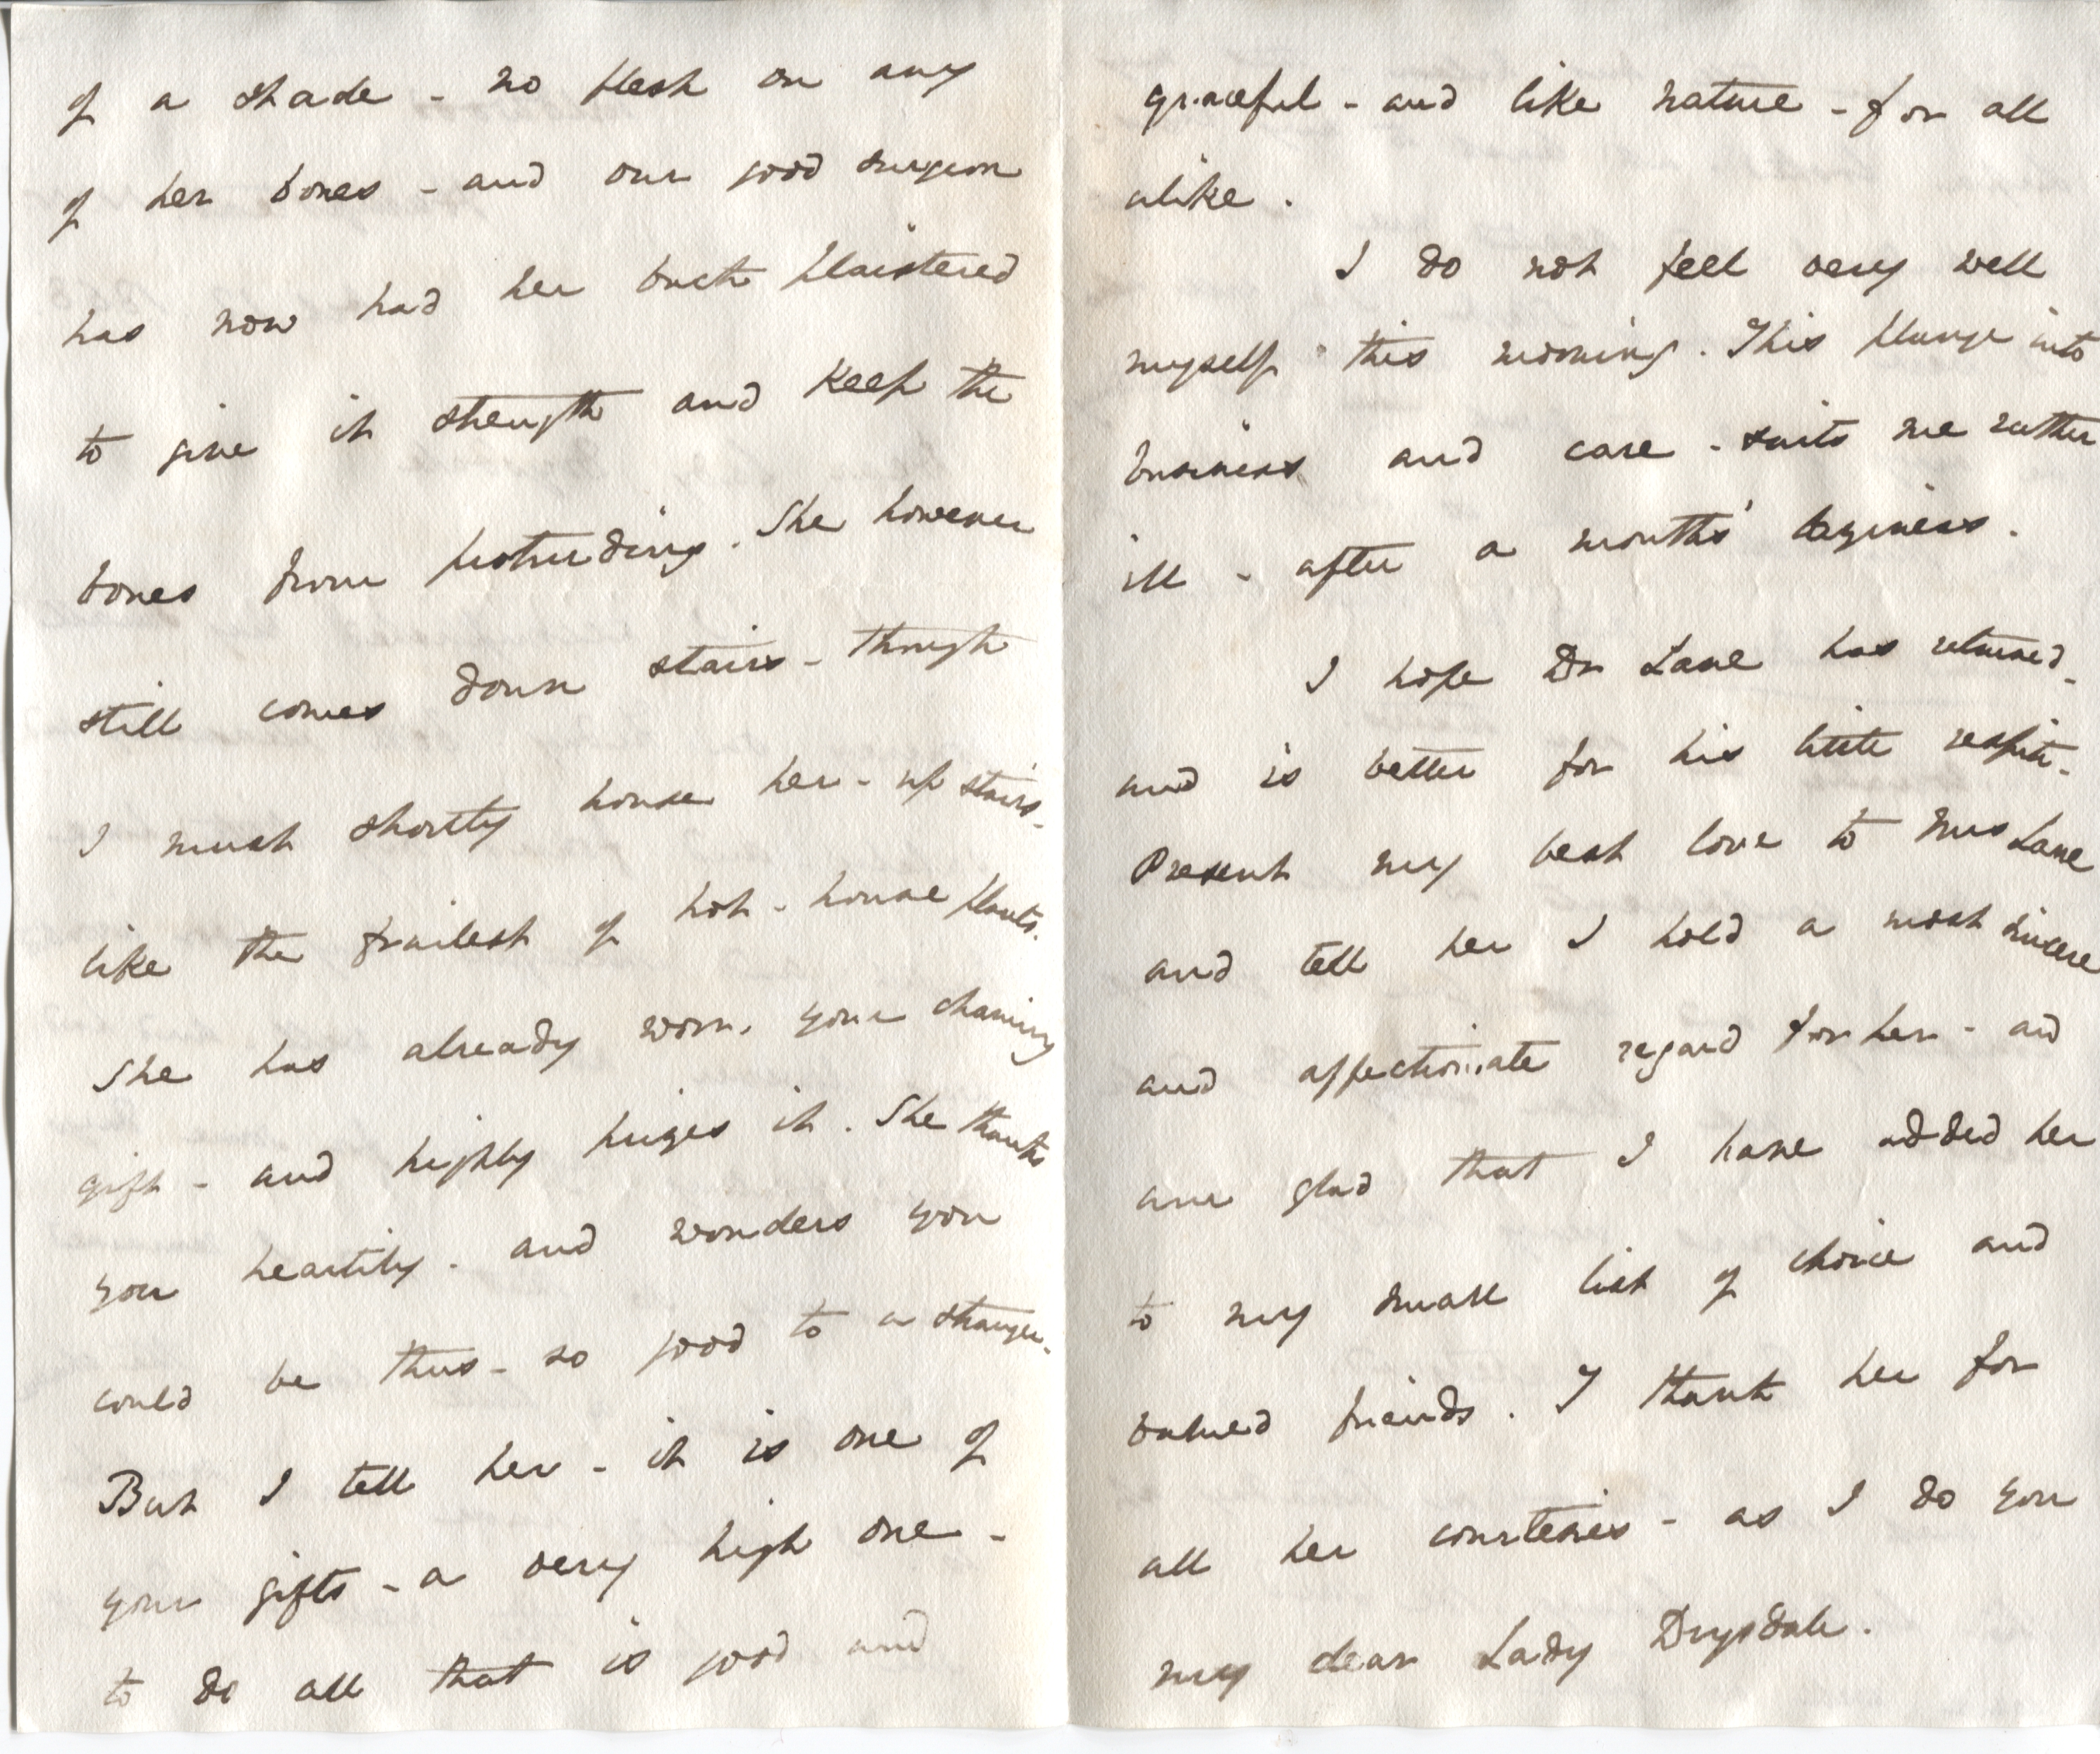 of a shade - no flesh on any
of her bones - and our good surgeon
has now had her back plaistered
to give it strength and keep the
bones from protruding. She however
still comes down stairs - though
I must shortly house her - up stairs -
like the frailest of hot-house plants.
She has already worn, your charming
gift - and highly prizes it. She thanks
you heartily - and wonders you
could be thus - so good to a stranger -
But I tell her - it is one of
your gifts - a very high one -
to do all that is good and
graceful - and like nature - for all
alike.
I do not feel very well
myself this morning. This plunge into
business and care - suits me rather
ill - after a month's laziness.
I hope Dr Lane has returned -
and is better for his little respite -
Present my best love to Mrs Lane
and tell her I hold a most sincere
and affectionate regard for her - and
am glad that I have added her
to my small list of choice and
valued friends. I thank her for
all her courtesies - as I do you
my dear Lady Drysdale.